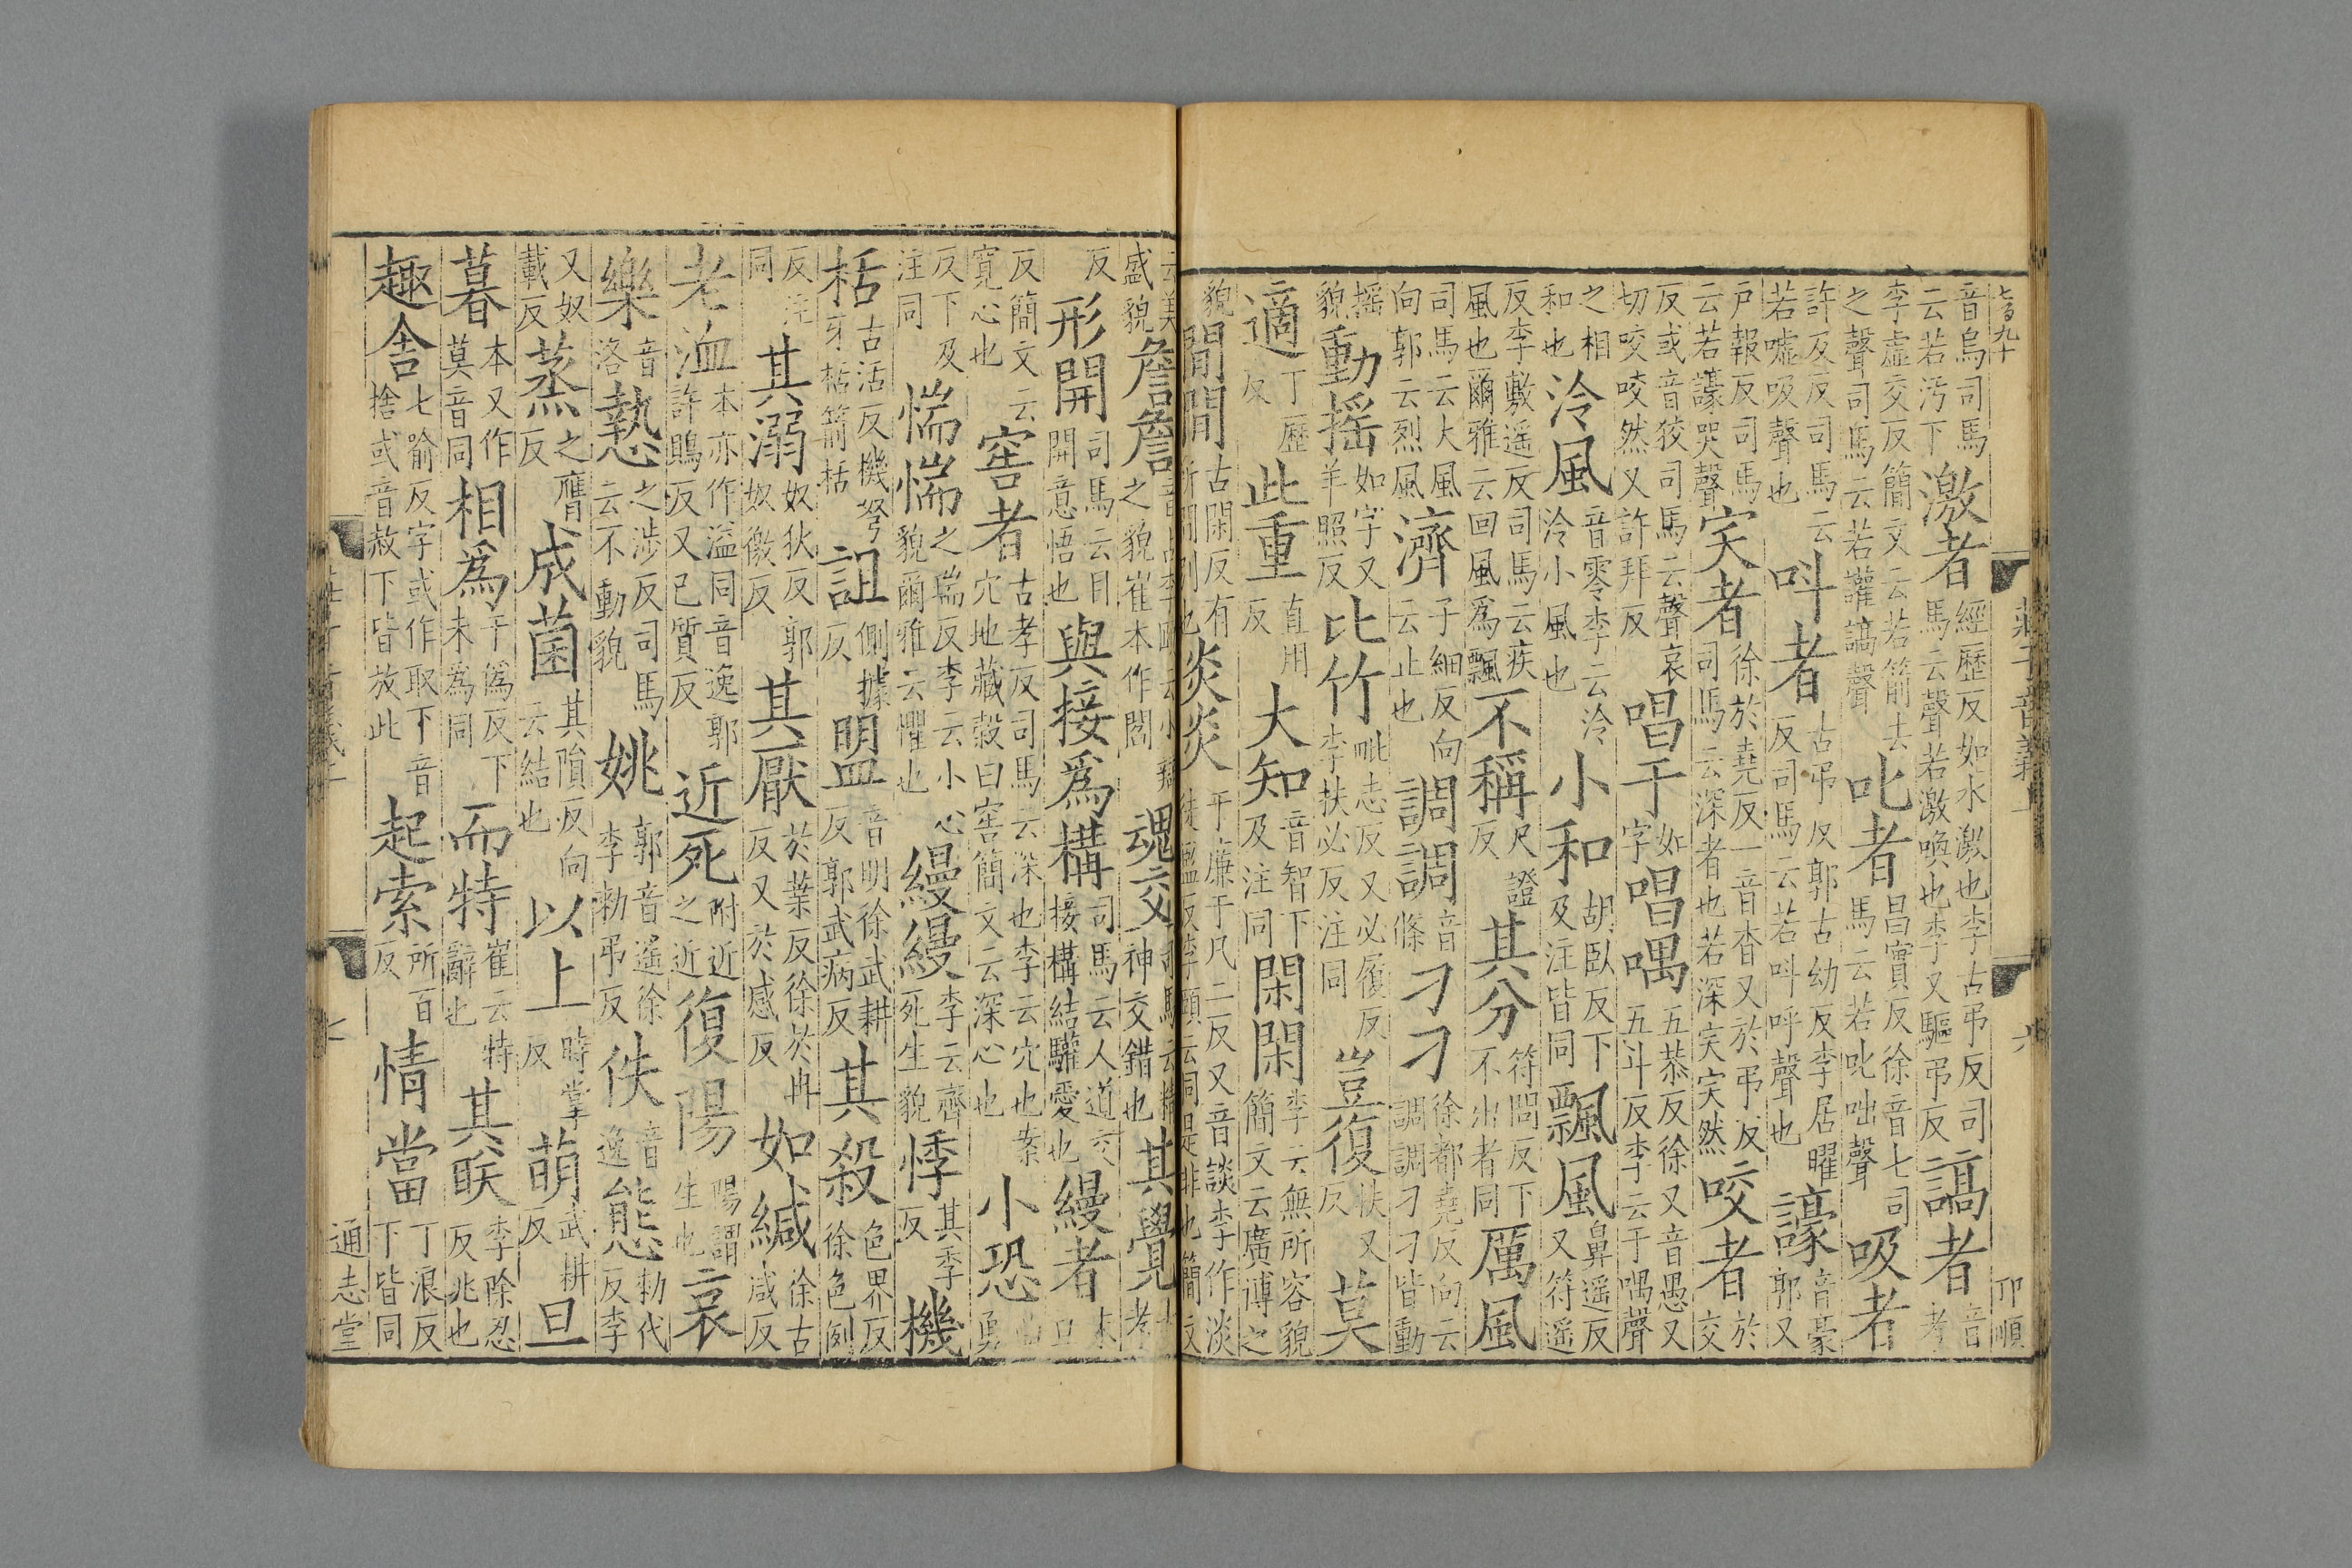 七百九十 莊子音義上 六 邙順
音烏司馬云若汚下激者經歷反如水激也李古弔反司馬云聲若激喚也李又驅弔反謞者音孝
李虛交反簡文云若箭去之聲司馬云若讙謞聲叱者昌實反徐音七司馬云若叱咄聲吸者
許及反司馬云若噓吸聲也叫者古弔反郭古幼反李居曜反司馬云若叫呼聲也譹者音豪郭又
戶報反司馬云若譹哭聲宎者徐於堯反一音杳又於弔反司馬云深者也若深宎宎然咬者於交
反或音狡司馬云聲哀切咬咬然又許拜反唱于如字唱喁五恭反徐又音愚又五斗反李云于喁聲
之相和也泠風音零李云泠泠小風也小和胡臥反下及注皆同飄風鼻遙反又符遙
反李敷遙反司馬云疾風也爾雅云回風爲飄不稱尺證反其分符問反下不出者同厲風
司馬云大風向郭云烈風濟子細反向云止也調調音條刁刁徐都堯反向云調調刁刁皆動
搖貌動搖如字又羊照反比竹毗志反又必履反李扶必反注同豈復扶又反莫
適丁歷反此重直用反大知音智下及注同閑閑李云無所容貌簡文云廣博之
貌閒閒古閑反有所閒別也炎炎于廉于凡二反又音談李作淡徒濫反李頤云同是非也簡文
云美盛貌詹詹音占李頤云小辯之貌崔本作閻魂交司馬云精神交錯也其覺古孝
反形開司馬云目開意悟也與接爲構司馬云人道交接構結驩愛也縵者末旦
反簡文云寬心也窖者古孝反司馬云深也李云穴也案穴地藏穀曰窖簡文云深心也小恐曲勇
反下及注同惴惴之瑞反李云小心貌爾雅云懼也縵縵李云齊死生貌悸其季反機
栝古活反機弩牙栝箭栝詛側據反盟音明徐武耕反郭武病反其殺色界反徐色例
反注同其溺奴狄反郭奴徼反其厭於葉反徐於冉反又於感反如緘徐古咸反
老洫本亦作溢同音逸郭許鵙反又已質反近死附近之近復陽陽謂生也哀
樂音洛慹之涉反司馬云不動貌姚郭音遙徐李勑弔反佚音逸態勑代反李
又奴載反蒸之膺反成菌其隕反向云結也以上時掌反萌武耕反旦
暮本又作莫音同相爲于僞反下未爲同而特崔云特辭也其眹李除忍反兆也
趣舍七喻反字或作取下音捨或音赦下皆放此起索所百反情當丁浪反下皆同
通志堂